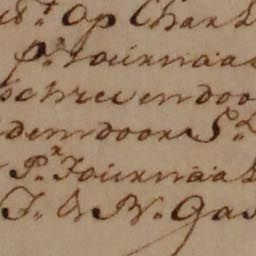 op Char
pr Journaa
schreven doo
dem door Sr
Pr Journaal
J. & N. Gas